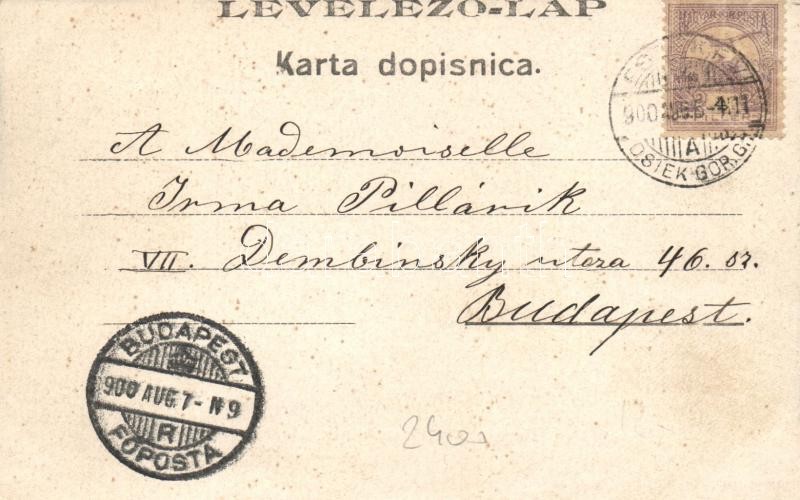 LEVELEZŐ-LAP
Karta dopisnica.
MAGYAR POSTA
900 AUG. 6
A
OSIEK GOR. G.
A Mademoiselle
Irma Pillárik
VII. Dembinsky utcza 46. sz.
Budapest.
BUDAPEST
900 AUG. 7 - N 9
R
FŐPOSTA